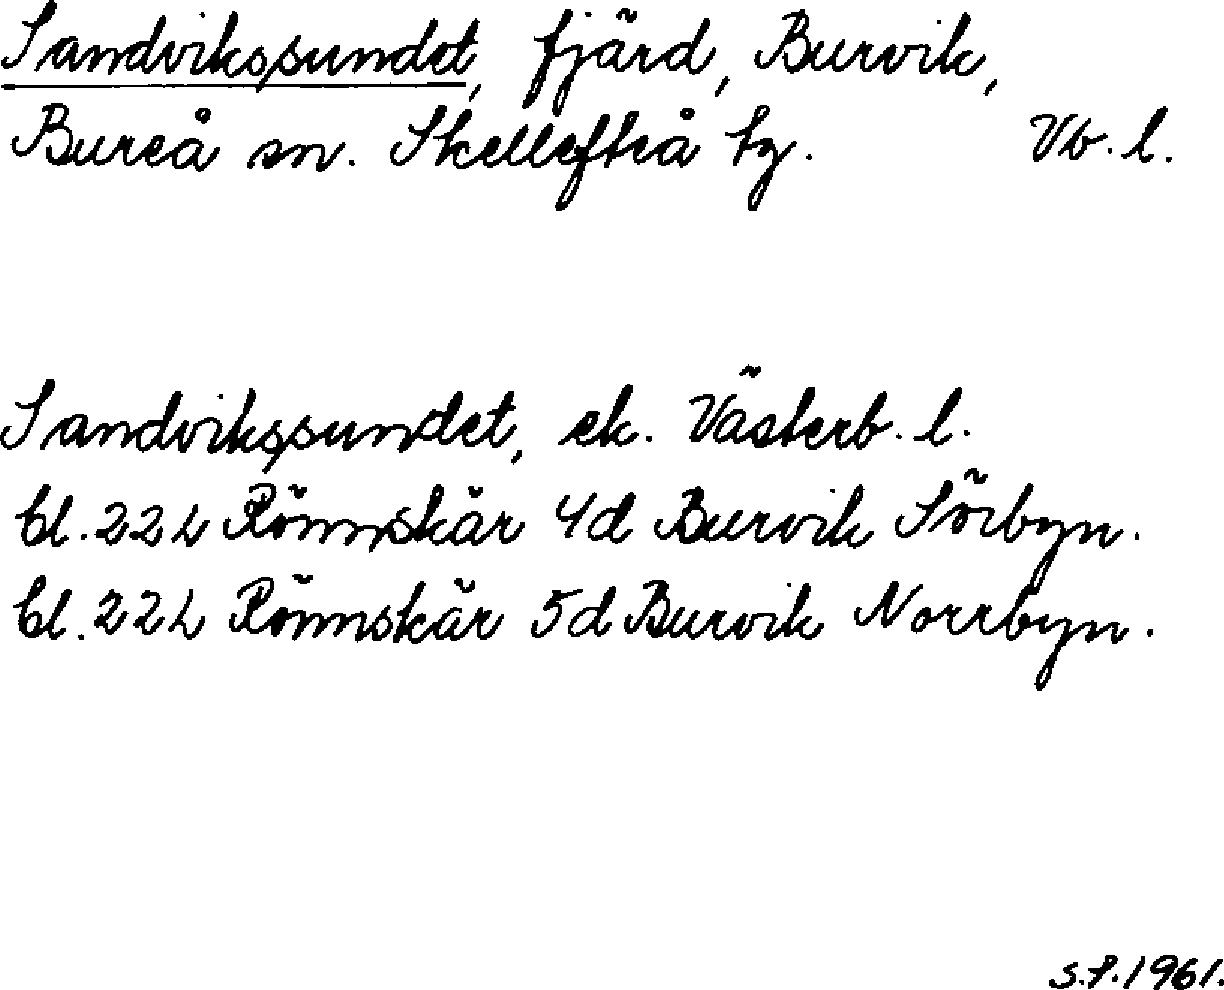 Sandvikssundet, fjärd, Burvik,
Bureå sn. Skellefteå tg. Vb. l.
Sandvikssundet, ek. Västerb. l.
bl. 22L Rönnskär 4d Burvik Sörbyn.
bl. 22L Rönnskär 5d Burvik Norrbyn.
S.P. 1961.